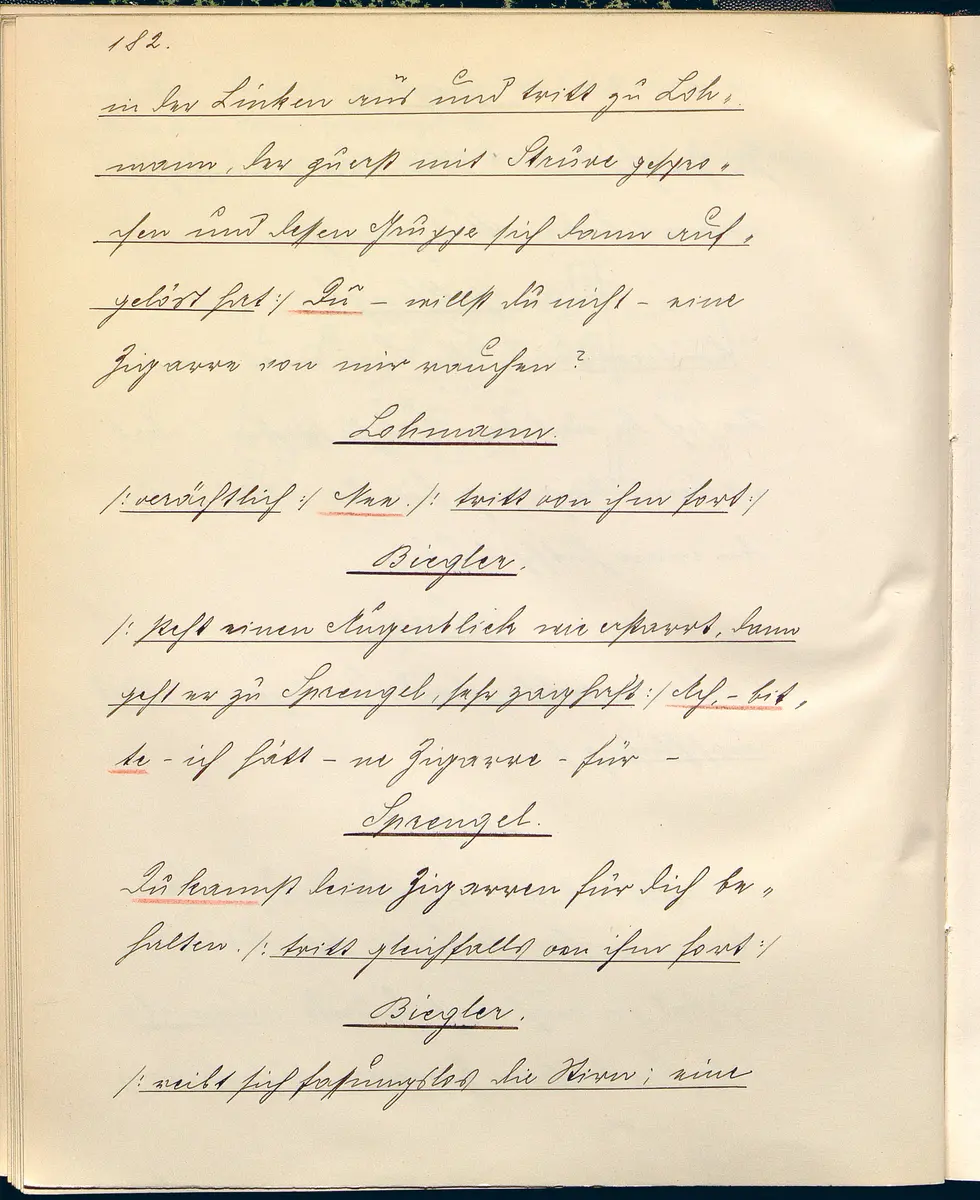 182.
in der Linken aus und tritt zu Loh-
mann, der zuerst mit Struve gespro-
chen und dessen Gruppe sich dann auf-
gelöst hat :/ Du – willst du nicht – eine
Zigarre von mir rauchen?
Lohmann.
/: verächtlich :/ Nee. /: tritt von ihm fort :/
Biegler.
/: steht einen Augenblick wie erstarrt, dann
geht er zu Sprengel, sehr zaghaft :/ Ach, – bit-
te – ich hätt – ne Zigarre – für –
Sprengel.
Du kannst deine Zigarren für dich be-
halten. /: tritt gleichfalls von ihm fort :/
Biegler.
/: reibt sich fassungslos die Stirn; eine